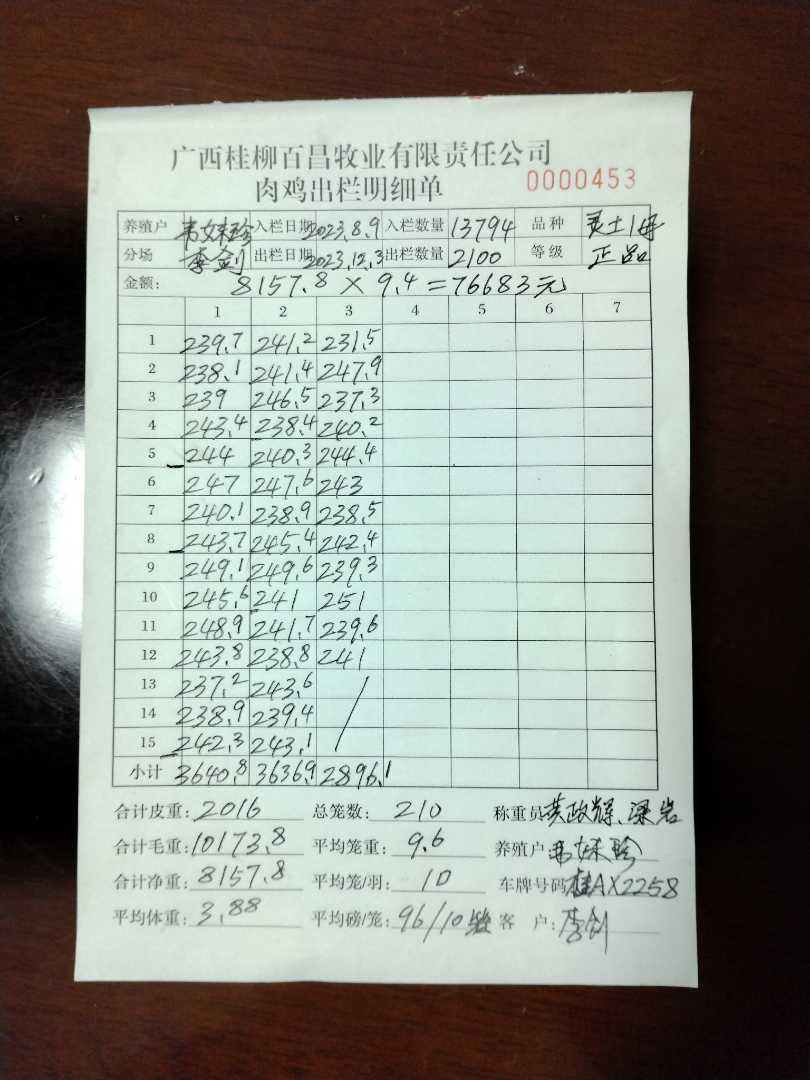 广西桂柳百昌牧业有限责任公司
肉鸡出栏明细单 0000453
养殖户 韦妹珍 入栏日期 2023.8.9 入栏数量 13794 品种 灵土1号
分场 李剑 出栏日期 2023.12.3 出栏数量 2100 等级 正品
金额: 8157.8 × 9.4 = 76683元
1 2 3 4 5 6 7
1 239.7 241.2 231.5
2 238.1 241.4 247.9
3 239 246.5 237.3
4 243.4 238.4 240.2
5 244 240.3 244.4
6 247 247.6 243
7 240.1 238.9 238.5
8 243.7 245.4 242.4
9 249.1 249.6 239.3
10 245.6 241 251
11 248.9 241.7 239.6
12 243.8 238.8 241
13 237.2 243.6
14 238.9 239.4
15 242.3 243.1
小计 3640.8 3636.9 2896.1
合计皮重: 2016 总笼数: 210 称重员 黄政辉、梁岩
合计毛重: 10173.8 平均笼重: 9.6 养殖户 韦妹珍
合计净重: 8157.8 平均笼/羽: 10 车牌号码 桂AX2258
平均体重: 3.88 平均磅/笼: 96/10 客 户: 李剑